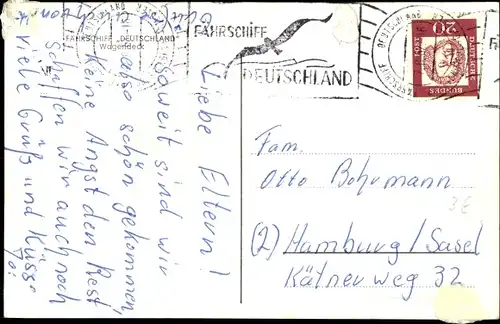 FÄHRSCHIFF
DEUTSCHLAND
FÄHRSCHIFF „DEUTSCHLAND
Wagendeck
DEUTSCHE
BUNDES
POST
20
Liebe Eltern!
Soweit sind wir
also schön gekommen,
Keine Angst den Rest
schaffen wir auch noch
Viele Grüße und Küsse
Fam.
Otto Bohrmann
(2) Hamburg/Sasel
Kätnerweg 32
3€